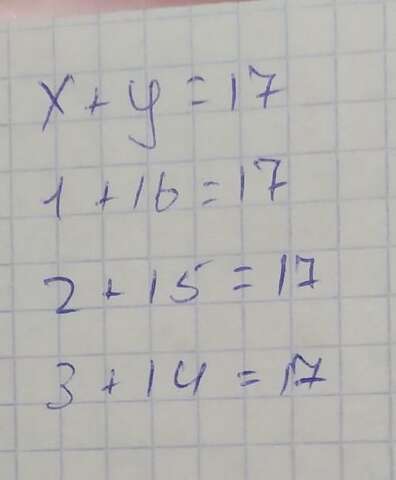 x + y = 17
1 + 16 = 17
2 + 15 = 17
3 + 14 = 17